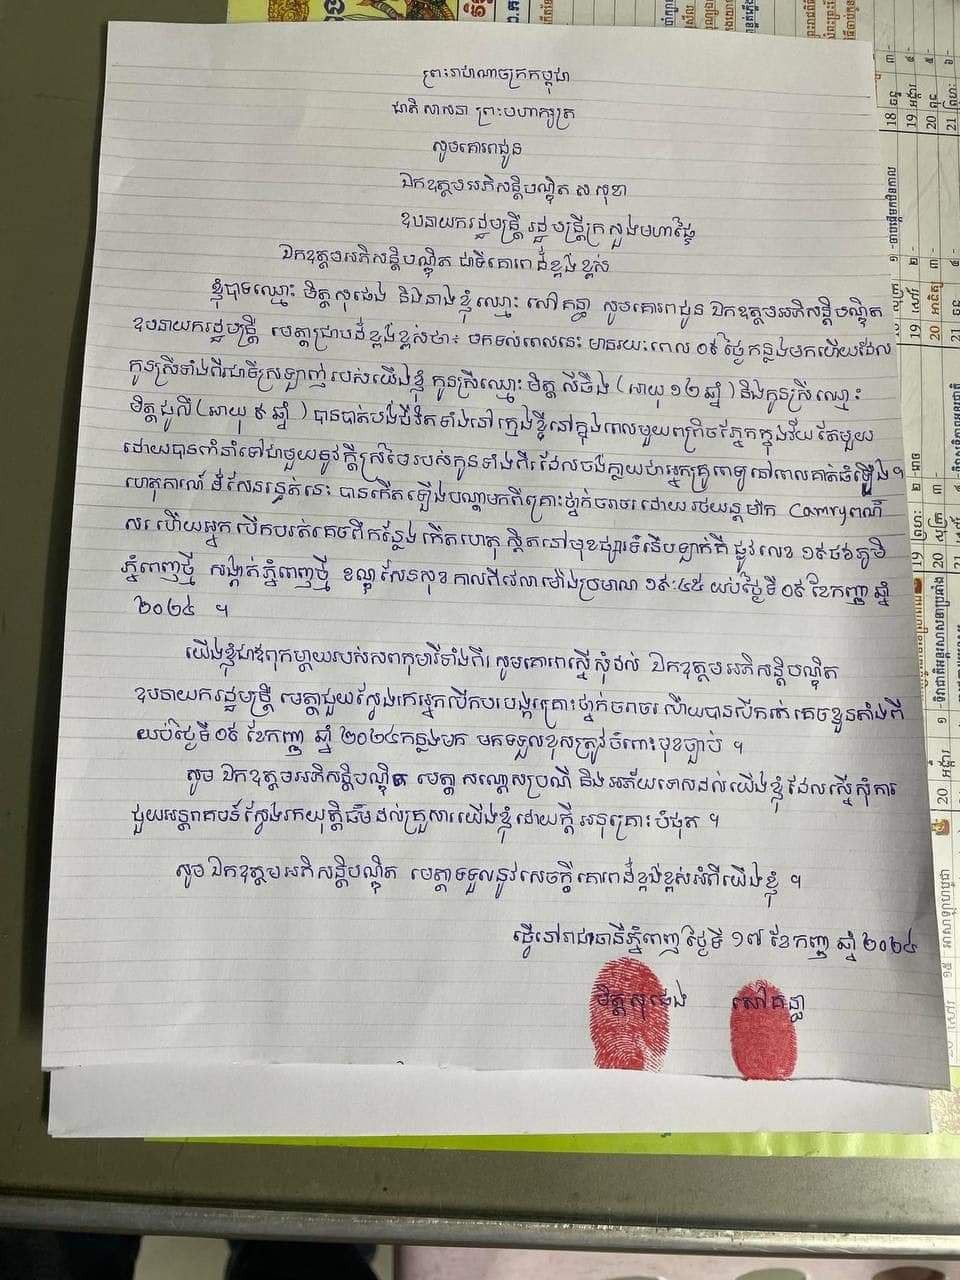 ព្រះរាជាណាចក្រកម្ពុជា
ជាតិ សាសនា ព្រះមហាក្សត្រ
សូមគោរពជូន
ឯកឧត្តមអភិសន្តិបណ្ឌិត ស សុខា
ឧបនាយករដ្ឋមន្ត្រី រដ្ឋមន្ត្រីក្រសួងមហាផ្ទៃ
ឯកឧត្តមអភិសន្តិបណ្ឌិត ជាទីគោរពដ៏ខ្ពង់ខ្ពស់
ខ្ញុំបាទឈ្មោះ មិត្ត សុផេង និងនាងខ្ញុំឈ្មោះ សៅ គន្ធា សូមគោរពជូន ឯកឧត្តមអភិសន្តិបណ្ឌិត
ឧបនាយករដ្ឋមន្ត្រី មេត្តាជ្រាបដ៏ខ្ពង់ខ្ពស់ថា៖ មកទល់ពេលនេះ មានរយៈពេល ០៩ ថ្ងៃកន្លងមកហើយដែល
កូនស្រីទាំងពីរជាទីស្រឡាញ់របស់យើងខ្ញុំ កូនស្រីឈ្មោះ មិត្ត លីជីង (អាយុ ១២ ឆ្នាំ) និងកូនស្រីឈ្មោះ
មិត្ត ជូលី (អាយុ ៩ ឆ្នាំ) បានបាត់បង់ជីវិតទាំងនៅក្មេងខ្ចីនៅក្នុងពេលមួយពព្រិចភ្នែកក្នុងវ័យ តែមួយ
ដោយបាននាំទៅជាមួយនូវក្ដីស្រមៃរបស់កូនទាំងពីរដែលចង់ក្លាយជាអ្នកគ្រូពេទ្យនៅពេលគាត់ធំឡើង។
ហេតុការណ៍ ដ៏សែនរន្ធត់នេះ បានកើតឡើងបណ្ដាមកពីគ្រោះថ្នាក់ចរាចរ ដោយ រថយន្តម៉ាក Camryពណ៌
ស ហើយអ្នក បើកបររត់គេចពីកន្លែង កើតហេតុ ស្ថិតនៅមុខផ្សារទំនើបឡាក់គី ផ្លូវលេខ ១៩៨៦ភូមិ
ភ្នំពេញថ្មី សង្កាត់ភ្នំពេញថ្មី ខណ្ឌសែនសុខ កាលពីវេលាម៉ោងប្រមាណ ១៩:៤៥ យប់ថ្ងៃទី ០៩ ខែកញ្ញា ឆ្នាំ
២០២៤ ។
យើងខ្ញុំជាឪពុកម្ដាយរបស់សពកុមារីទាំងពីរ សូមគោរពស្នើសុំដល់ ឯកឧត្តមអភិសន្តិបណ្ឌិត
ឧបនាយករដ្ឋមន្ត្រី មេត្តាជួយស្វែងរកអ្នកបើកបរបង្កគ្រោះថ្នាក់ចរាចរ ហើយបានបើករត់គេចខ្លួនតាំងពី
យប់ថ្ងៃទី ០៩ ខែកញ្ញា ឆ្នាំ ២០២៤កន្លងមក មកទទួលខុសត្រូវចំពោះមុខច្បាប់ ។
សូម ឯកឧត្តមអភិសន្តិបណ្ឌិត មេត្តា សណ្ដោសប្រណី និងអភ័យទោសដល់យើងខ្ញុំដែលស្នើសុំការ
ជួយអន្តរាគមន៍ ស្វែងរកយុត្តិធម៌ដល់គ្រួសារយើងខ្ញុំដោយក្ដី អនុគ្រោះ បំផុត ។
សូម ឯកឧត្តមអភិសន្តិបណ្ឌិត មេត្តាទទួលនូវសេចក្ដីគោរពដ៏ខ្ពង់ខ្ពស់អំពីយើងខ្ញុំ ។
ធ្វើនៅរាជធានីភ្នំពេញ ថ្ងៃទី ១៧ ខែកញ្ញា ឆ្នាំ ២០២៤
មិត្ត សុផេង សៅ គន្ធា